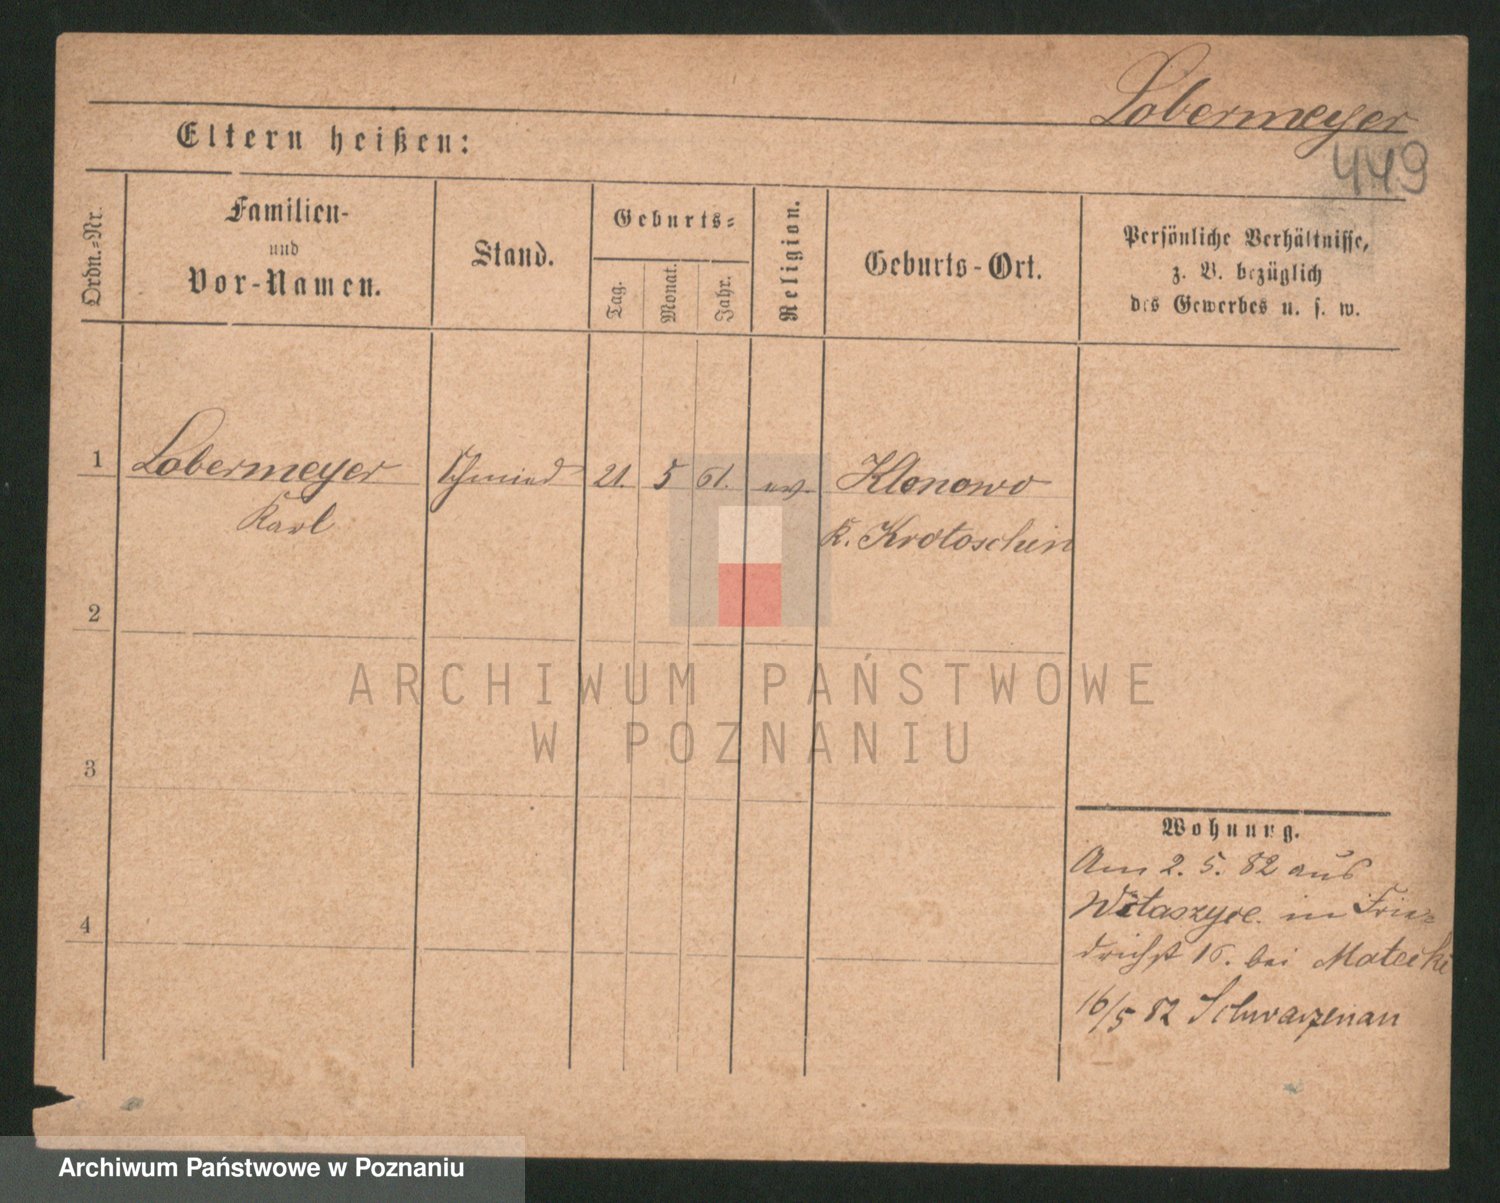 Lobermeyer
449
Eltern heißen:
Ordn.-Nr.
Familien-
und
Vor-Namen.
Stand.
Geburts-
Tag.
Monat.
Jahr.
Religion.
Geburts-Ort.
Persönliche Verhältnisse,
z. B. bezüglich
des Gewerbes u. s. w.
1 Lobermeyer Schmied 21. 5 61. ev. Klonowo
Karl K. Krotoschin
2
3
4
Wohnung.
Am 2. 5. 82 aus
Witaszyce. in Frie-
drichst 16. bei Matecki
16/5 82 Schwarzenau
ARCHIWUM PAŃSTWOWE
W POZNANIU
Archiwum Państwowe w Poznaniu